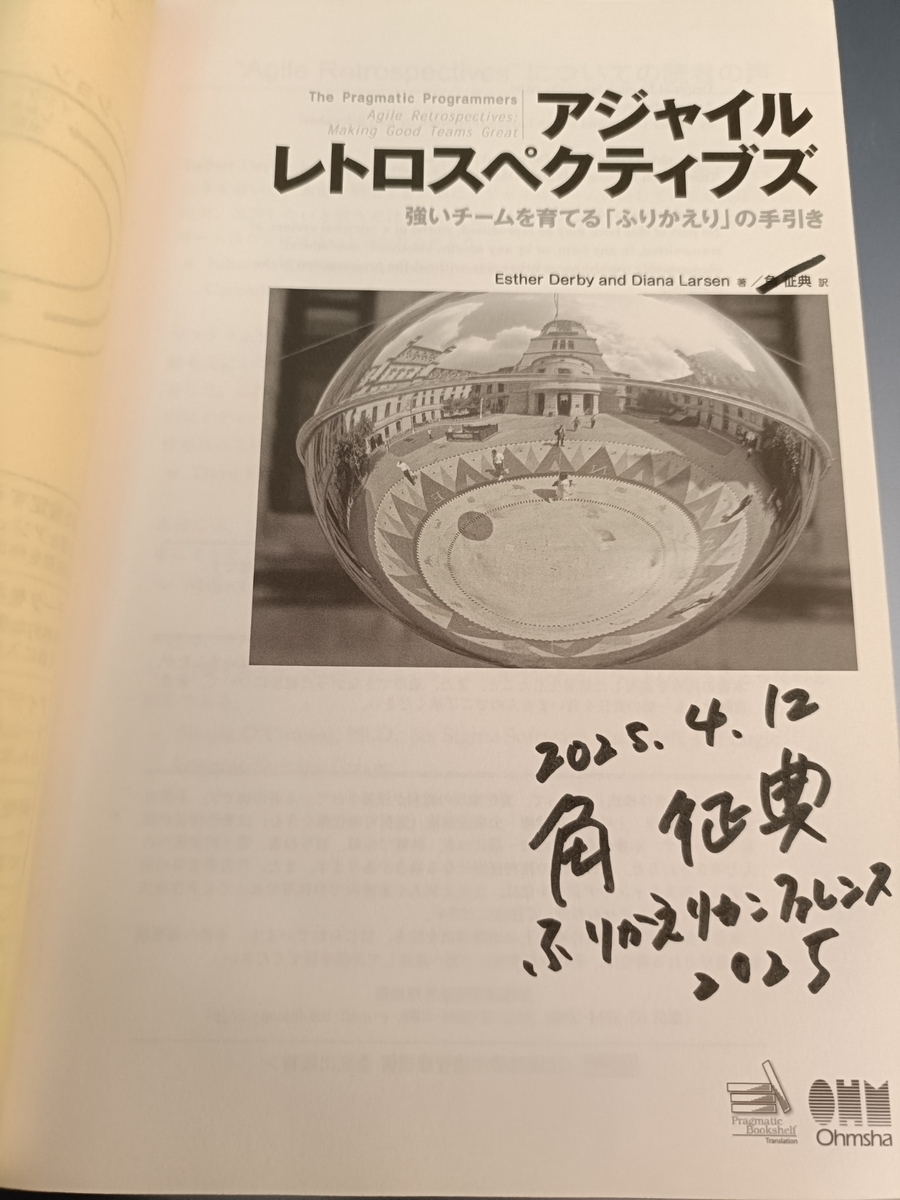 The Pragmatic Programmers
Agile Retrospectives:
Making Good Teams Great
アジャイル
レトロスペクティブズ
強いチームを育てる「ふりかえり」の手引き
Esther Derby and Diana Larsen 著 / 角 征典 訳
2025. 4. 12
角 征典
ふりかえりカンファレンス
2025
Pragmatic
Bookshelf
Translation
OHM
Ohmsha